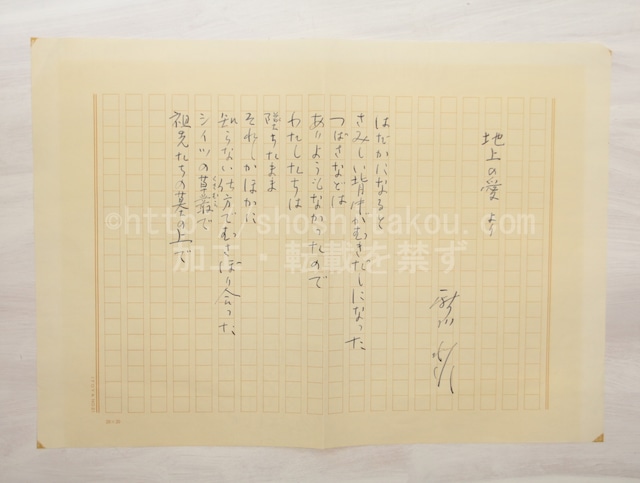 地上の愛 より
新川 和江
はだかになると
さみしい背中がむきだしになった
つばさなどは
ありようもなかったので
わたしたちは
堕ちたまま
それしかほかに
知らない仕方でむさぼり合った
シイツの草叢で
祖先たちの墓の上で
©https://shoshi-takou.com/
加工・転載を禁ず